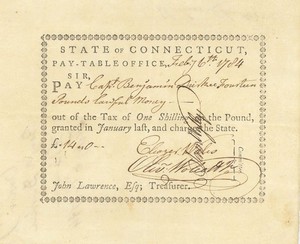 STATE OF CONNECTICUT,
PAY-TABLE OFFICE, Feby 6th 1784
SIR,
PAY Capt. Benjamin Fourteen
Pounds Lawful Money
out of the Tax of One Shilling on the Pound,
granted in January last, and charge the State.
£ 14-0
Eleazr Wales
Oliv. Wolcott Jr
John Lawrence, Esq; Treasurer.